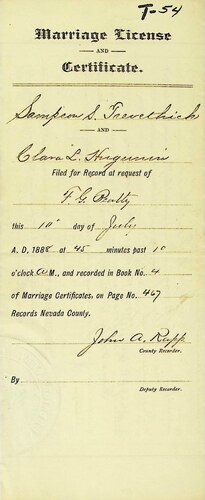 T-54
Marriage License
AND
Certificate.
Sampson S. Trevethick
AND
Clara L. Hugunin
Filed for Record at request of
F. G. Beatty
this 11" day of July
A. D. 1888 at 45 minutes past 10
o'clock A M., and recorded in Book No. 4
of Marriage Certificates, on Page No. 467
Records Nevada County.
John A. Rapp
County Recorder.
By
Deputy Recorder.